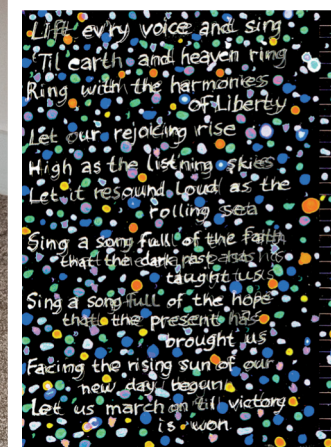 Lift ev'ry voice and sing
'Til earth and heaven ring
Ring with the harmonies
of Liberty
Let our rejoicing rise
High as the list'ning skies
Let it resound Loud as the
rolling sea
Sing a song full of the faith
that the dark past has
taught us
Sing a song full of the hope
that the present has
brought us
Facing the rising sun of our
new day begun
Let us march on 'til victory
is won